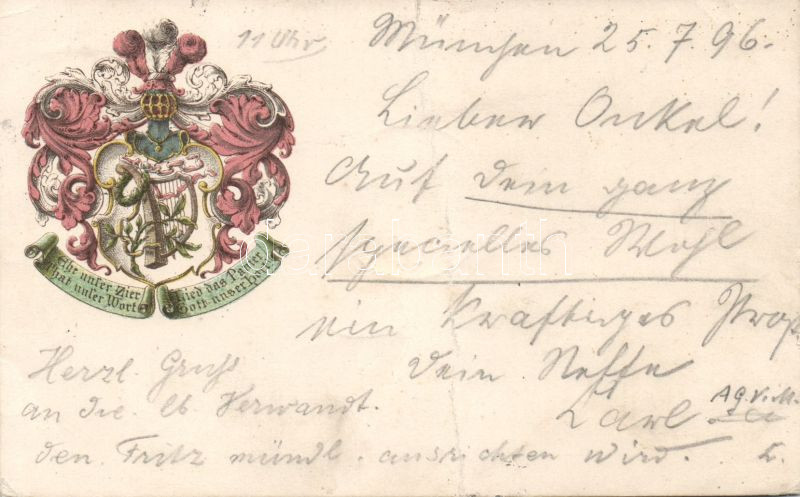 11 Uhr
München 25.7.96.
Lieber Onkel!
Auf Dein ganz
specielles Wohl
ein Kräftiges Prosit
Dein Neffe
Karl A.G.V.M.
Herzl. Gruß
an Die lb. Verwandt.
den Fritz mündl. ausrichten wird.
Ehr unser Zier
That unser Wort
Lied das Panier
Gott unser Hort